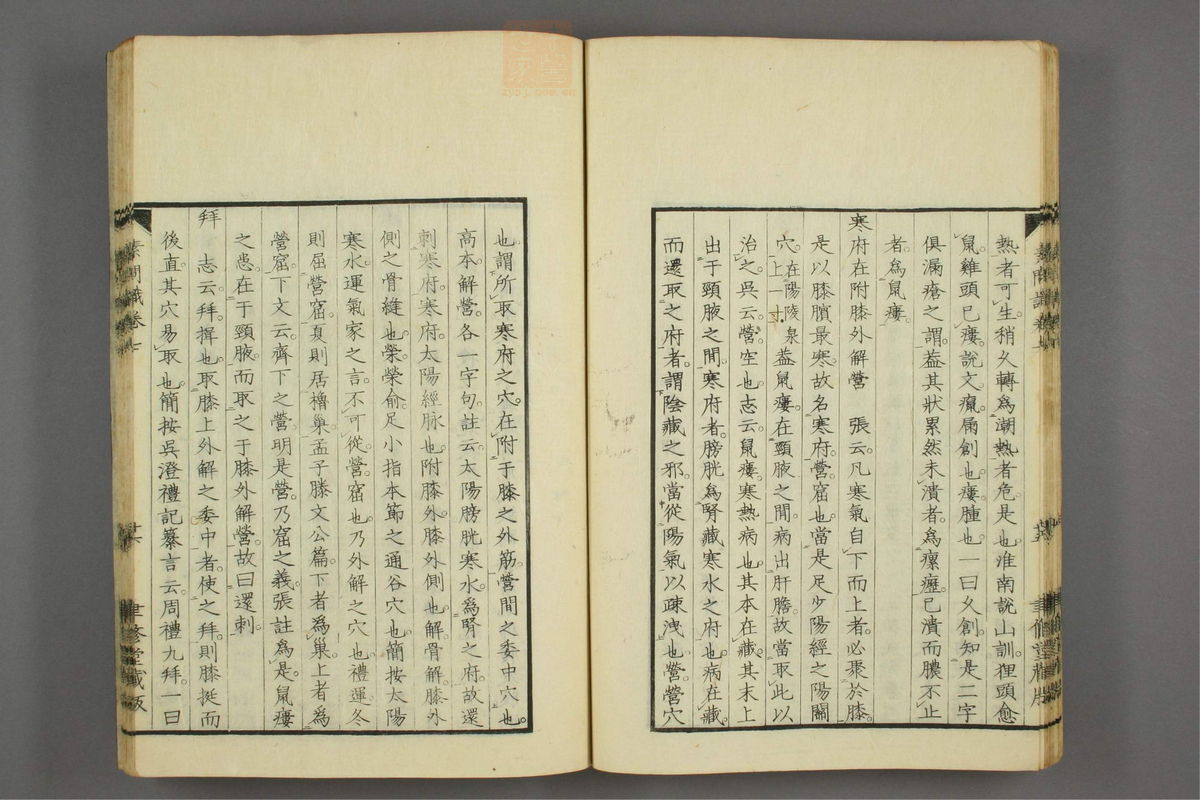 熱者可生稍久轉爲潮熱者危是也淮南說山訓狸頭愈
鼠雞頭已瘻說文瘺屚創也瘻腫也一曰久創知是二字
俱漏瘡之謂葢其狀累然未潰者爲瘰癧已潰而膿不止
者爲鼠瘻
寒府在附膝外解營　張云凡寒氣自下而上者必聚於膝
是以膝臏最寒故名寒府營窟也當是足少陽經之陽關
穴在陽陵泉上一寸葢鼠瘻在頸腋之間病出肝膽故當取此以
治之吳云營空也志云鼠瘻寒熱病也其本在藏其末上
出于頸腋之間寒府者膀胱爲腎藏寒水之府也病在藏
而還取之府者謂陰藏之邪當從陽氣以疎洩也營營穴
也謂所取寒府之穴在附于膝之外筋營間之委中穴也
高本解營各一字句註云太陽膀胱寒水爲腎之府故還
刺寒府寒府太陽經脉也附膝外膝外側也解骨解膝外
側之骨縫也榮榮俞足小指本節之通谷穴也簡按太陽
寒水運氣家之言不可從營窟也乃外解之穴也禮運冬
則居營窟夏則居橧巢孟子滕文公篇下者爲巢上者爲
營窟下文云齊下之營明是營乃窟之義張註爲是鼠瘻
之患在于頸腋而取之于膝外解營故曰還刺
拜　志云拜揖也取膝上外解之委中者使之拜則膝挺而
後直其穴易取也簡按吳澄禮記纂言云周禮九拜一曰
素問識卷七
廿六
聿修堂藏版